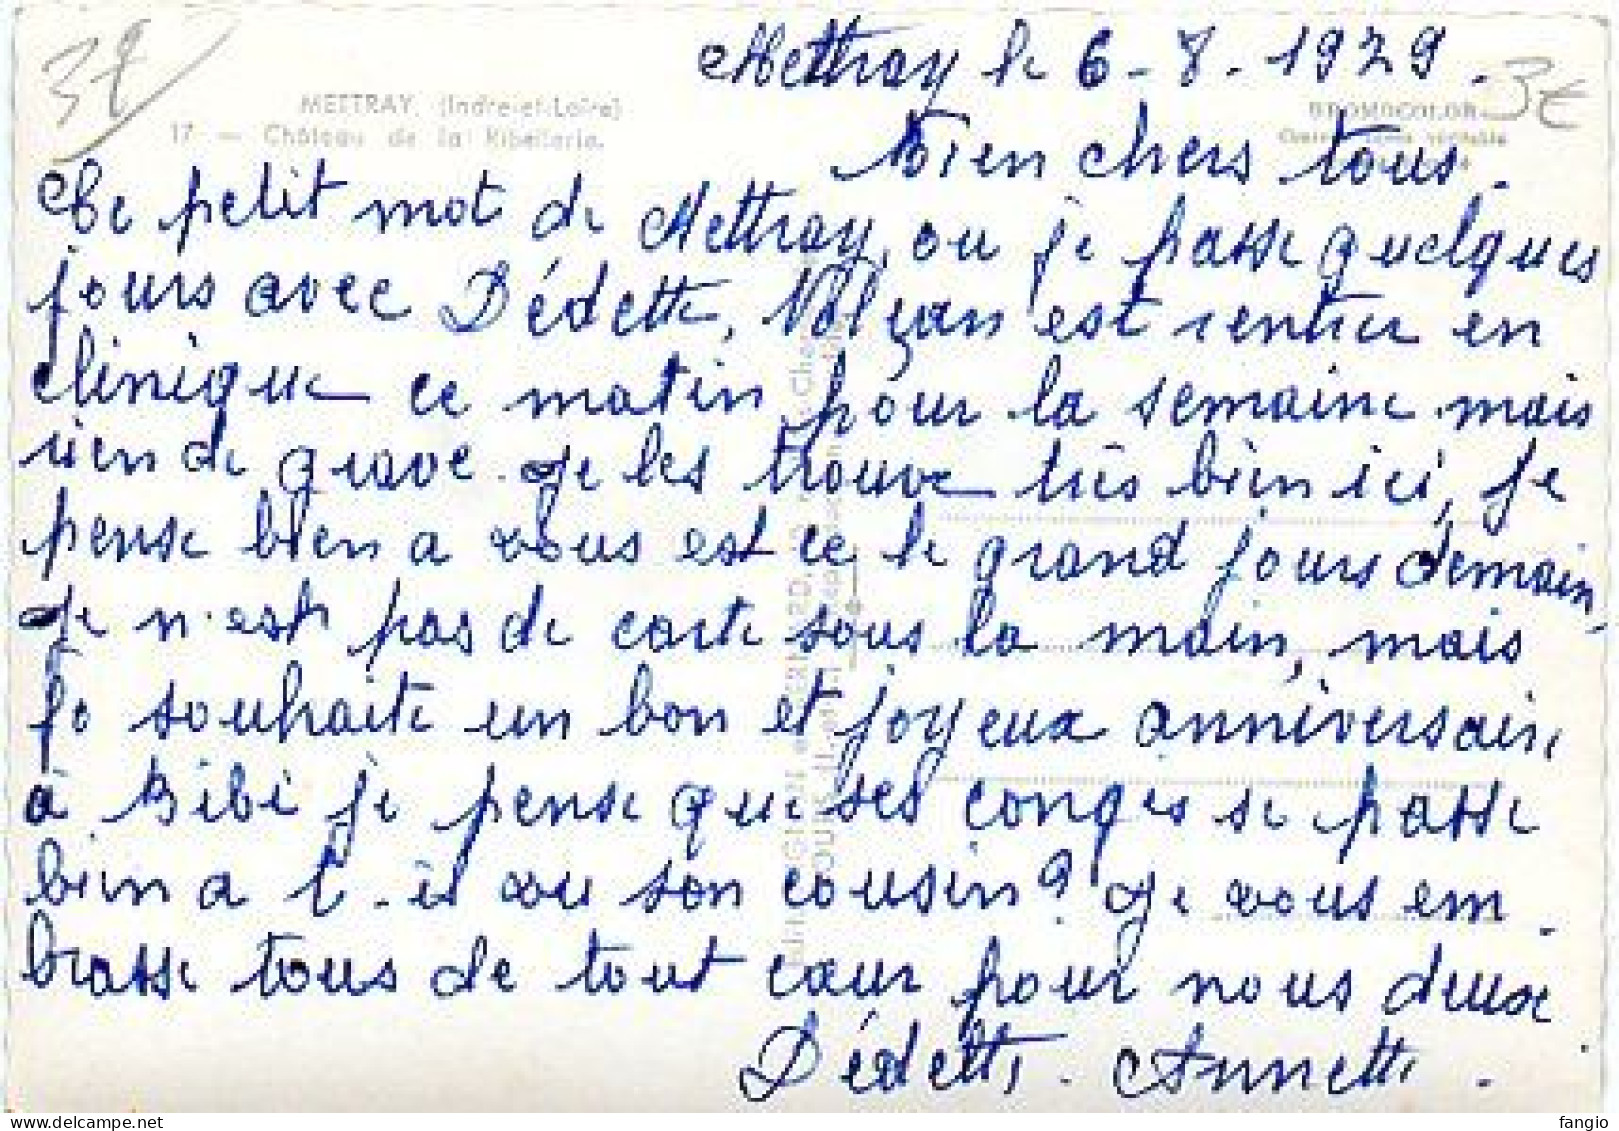 3€
METTRAY (Indre-et-Loire)
17 — Château de la Ribellerie.
3€
BROMOCOLOR
Mettray le 6-8-1979.
Bien chers tous.
Ce petit mot de Mettray, ou je passe quelques
jours avec Dédette, Volçan est rentrer en
clinique ce matin pour la semaine mais
rien de grave. Je les trouve très bien ici, je
pense bien a vous est ce le grand jours demain,
Je n'est pas de carte sous la main, mais
je souhaite un bon et joyeux anniversaire
à Bibi je pense que ses congés se passe
bien a t-il vu son cousin? Je vous em-
brasse tous de tout cœur pour nous deux
Dédette. Annette.
delcampe.net
fangio